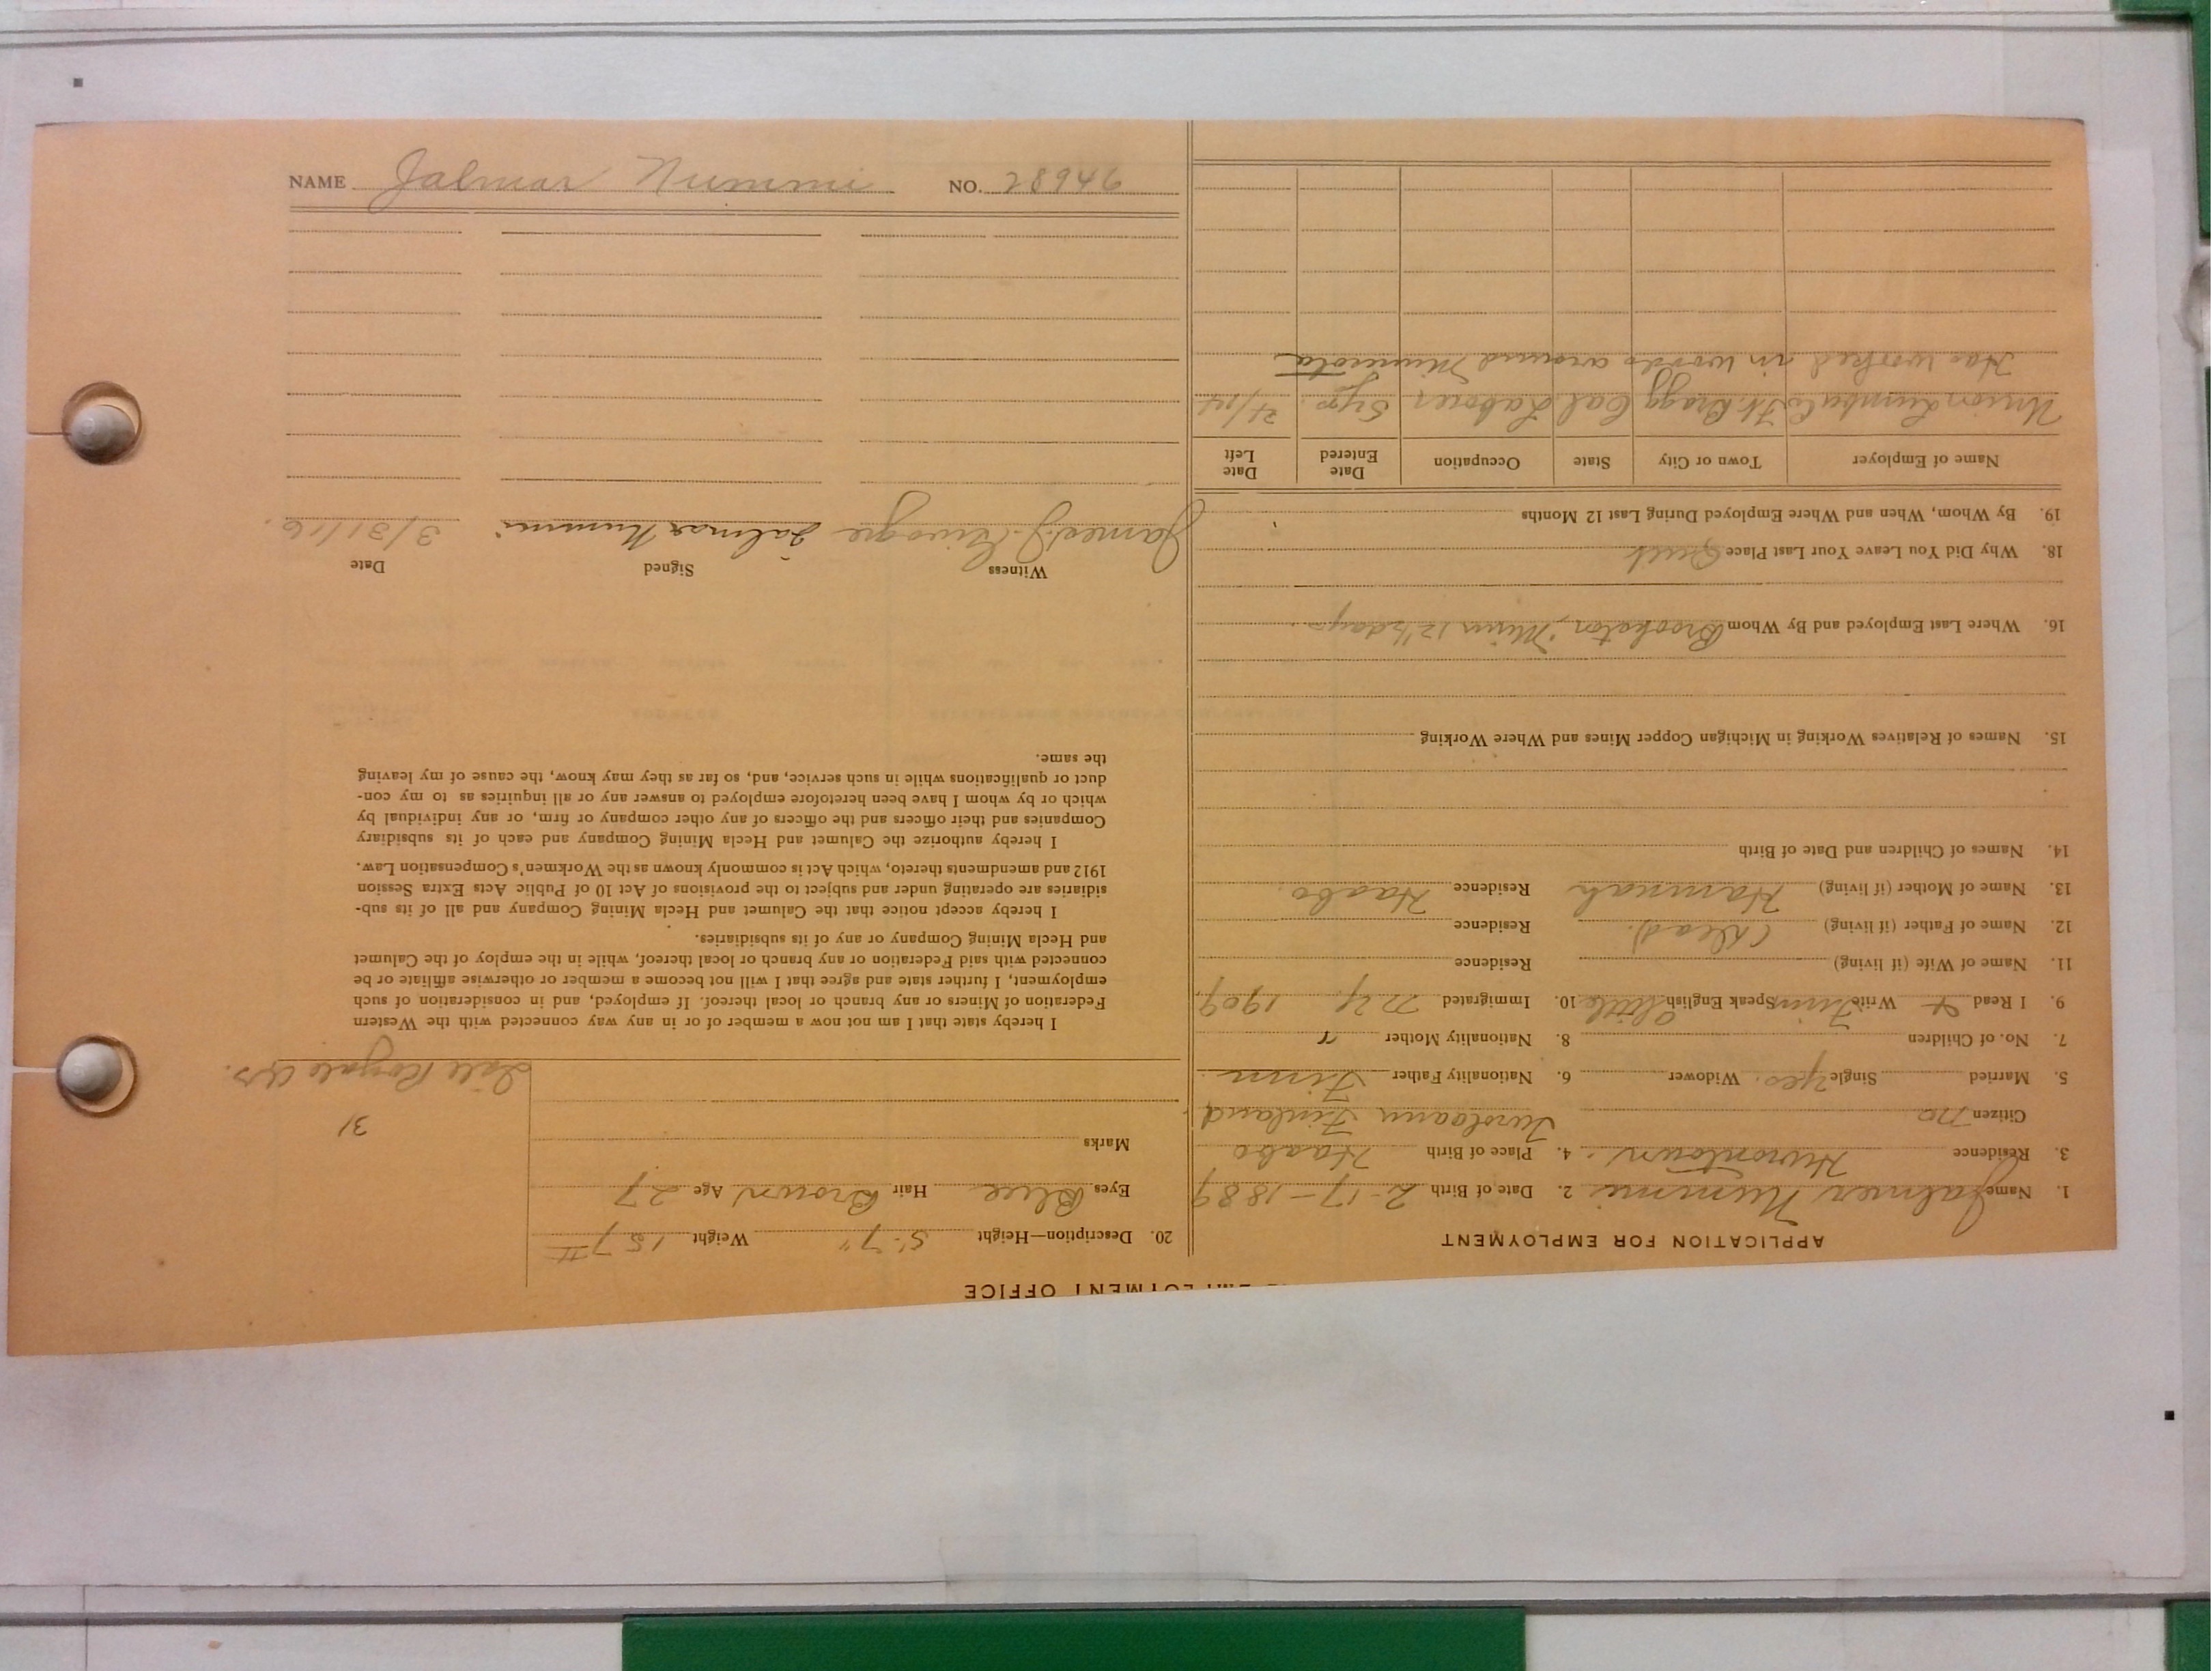 NAME Jalmar Nummi NO. 28946
EMPLOYMENT OFFICE
APPLICATION FOR EMPLOYMENT
1. Name Jalmer Nummi 2. Date of Birth 2-17-1889
3. Residence Hurontown. 4. Place of Birth Haabo
Citizen no Finland
5. Married Single yes. Widower 6. Nationality Father Finn
7. No. of Children 8. Nationality Mother "
9. I Read & Write Finn Speak English little 10. Immigrated N.Y. 1909
11. Name of Wife (if living) Residence
12. Name of Father (if living) (Dead). Residence
13. Name of Mother (if living) Hannah Residence Haabo.
14. Names of Children and Date of Birth
15. Names of Relatives Working in Michigan Copper Mines and Where Working
16. Where Last Employed and By Whom Brookston, Minn 12½ days
18. Why Did You Leave Your Last Place Quit
19. By Whom, When and Where Employed During Last 12 Months
Name of Employer Town or City State Occupation Date Entered Date Left
Union Lumber Co Ft. Bragg Cal Laborer 5 yrs.
Has worked in woods around Minnesota
20. Description—Height 5'-7" Weight 157 #
Eyes Blue Hair Brown Age 27
Marks
31
Isle Royale
I hereby state that I am not now a member of or in any way connected with the Western
Federation of Miners or any branch or local thereof. If employed, and in consideration of such
employment, I further state and agree that I will not become a member or otherwise affiliate or be
connected with said Federation or any branch or local thereof, while in the employ of the Calumet
and Hecla Mining Company or any of its subsidiaries.
I hereby accept notice that the Calumet and Hecla Mining Company and all of its sub-
sidiaries are operating under and subject to the provisions of Act 10 of Public Acts Extra Session
1912 and amendments thereto, which Act is commonly known as the Workmen's Compensation Law.
I hereby authorize the Calumet and Hecla Mining Company and each of its subsidiary
Companies and their officers and the officers of any other company or firm, or any individual by
which or by whom I have been heretofore employed to answer any or all inquiries as to my con-
duct or qualifications while in such service, and, so far as they may know, the cause of my leaving
the same.
Witness Signed Date
James J. Jalmar Nummi 3/31/16.